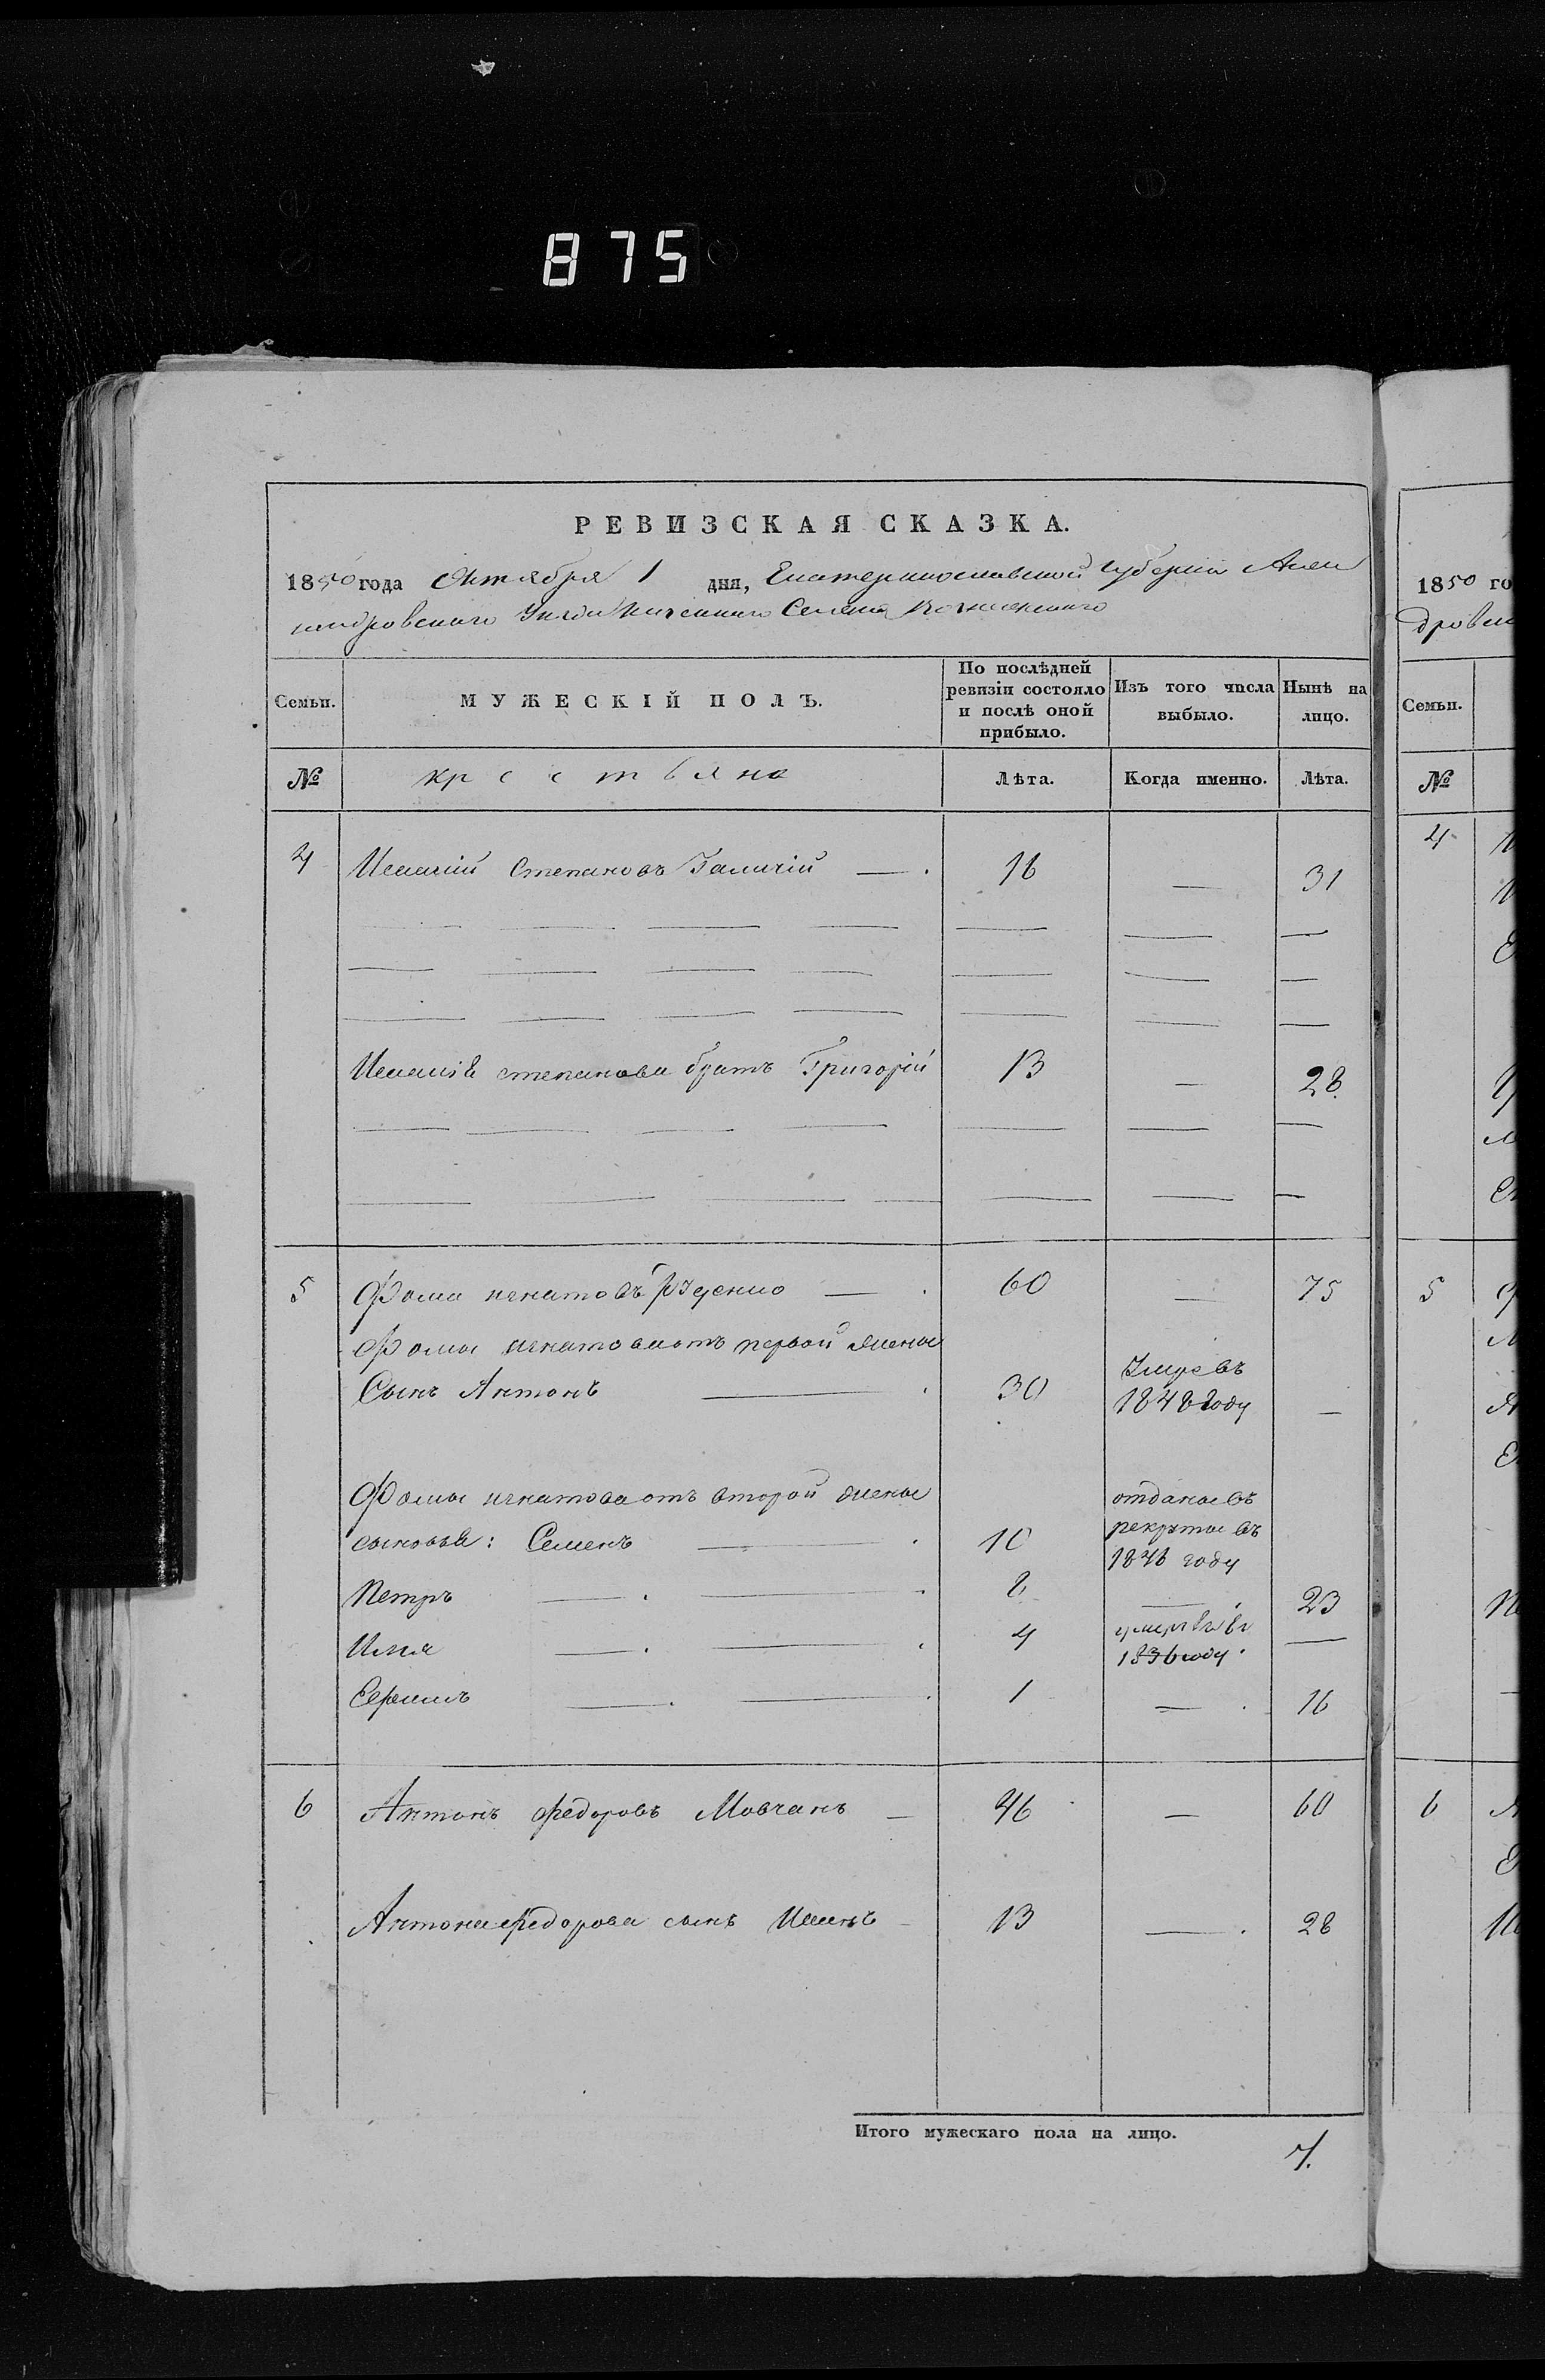 875
РЕВИЗСКАЯ СКАЗКА.
1850 года Октября 1 дня, Екатеринославской Губерніи Алек
сандровскаго Уезда Селенія
Семьи.
МУЖЕСКІЙ ПОЛЪ.
По послѣдней ревизіи состояло и послѣ оной прибыло.
Изъ того числа выбыло.
Нынѣ на лицо.
№ крестьяне Лѣта. Когда именно. Лѣта.
4 Степановъ — 16 — 31
степанова братъ Григорій 13 — 28.
5 Фома игнатовъ — 60 — 75
Фомы игнатова отъ первой жены
Сынъ Антонъ — 30 Умре въ 1848 году —
Фомы игнатова отъ второй жены
сыновья: Семенъ — 10 отданъ въ рекруты въ 1846 году
Петръ — 8 — 23
Илья — 4 умре въ 1836 году —
1 — 16
6 Антонъ Федоровъ Мовчанъ — 46 — 60
Антона Федорова сынъ Иванъ 13 — 28
Итого мужескаго пола на лицо.
7.
1850 го
дровск
Семьи.
№
4
5
6